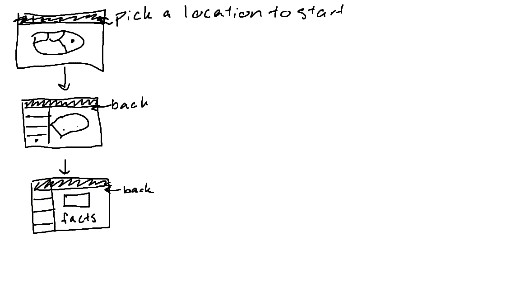 pick a location to start
back
back
facts